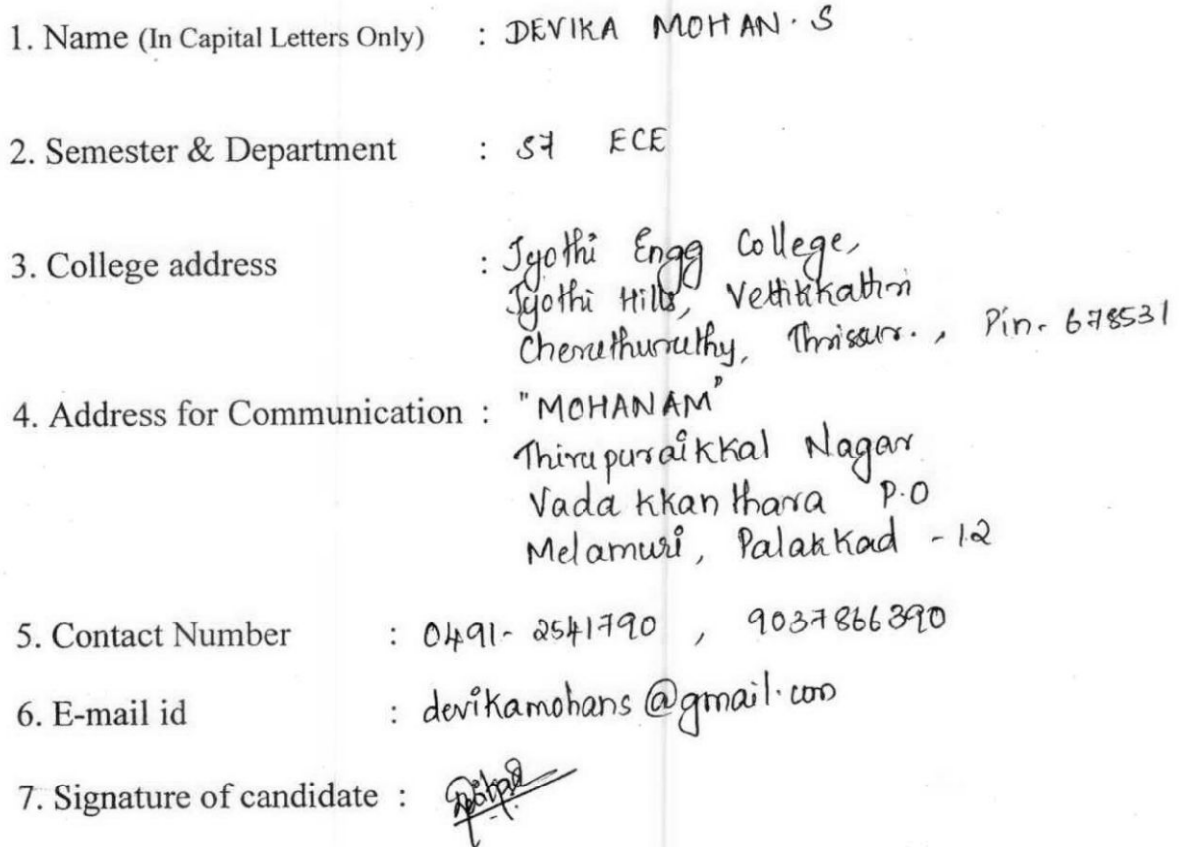 1. Name (In Capital Letters Only) : DEVIKA MOHAN. S
2. Semester & Department : S7 ECE
3. College address : Jyothi Engg College,
Jyothi Hills, Vettikkattiri
Cheruthuruthy, Thrissur., Pin- 678531
4. Address for Communication : "MOHANAM"
Thirupuraikkal Nagar
Vadakkanthara P.O
Melamuri, Palakkad - 12
5. Contact Number : 0491- 2541790 , 9037866390
6. E-mail id : devikamohans@gmail.com
7. Signature of candidate :